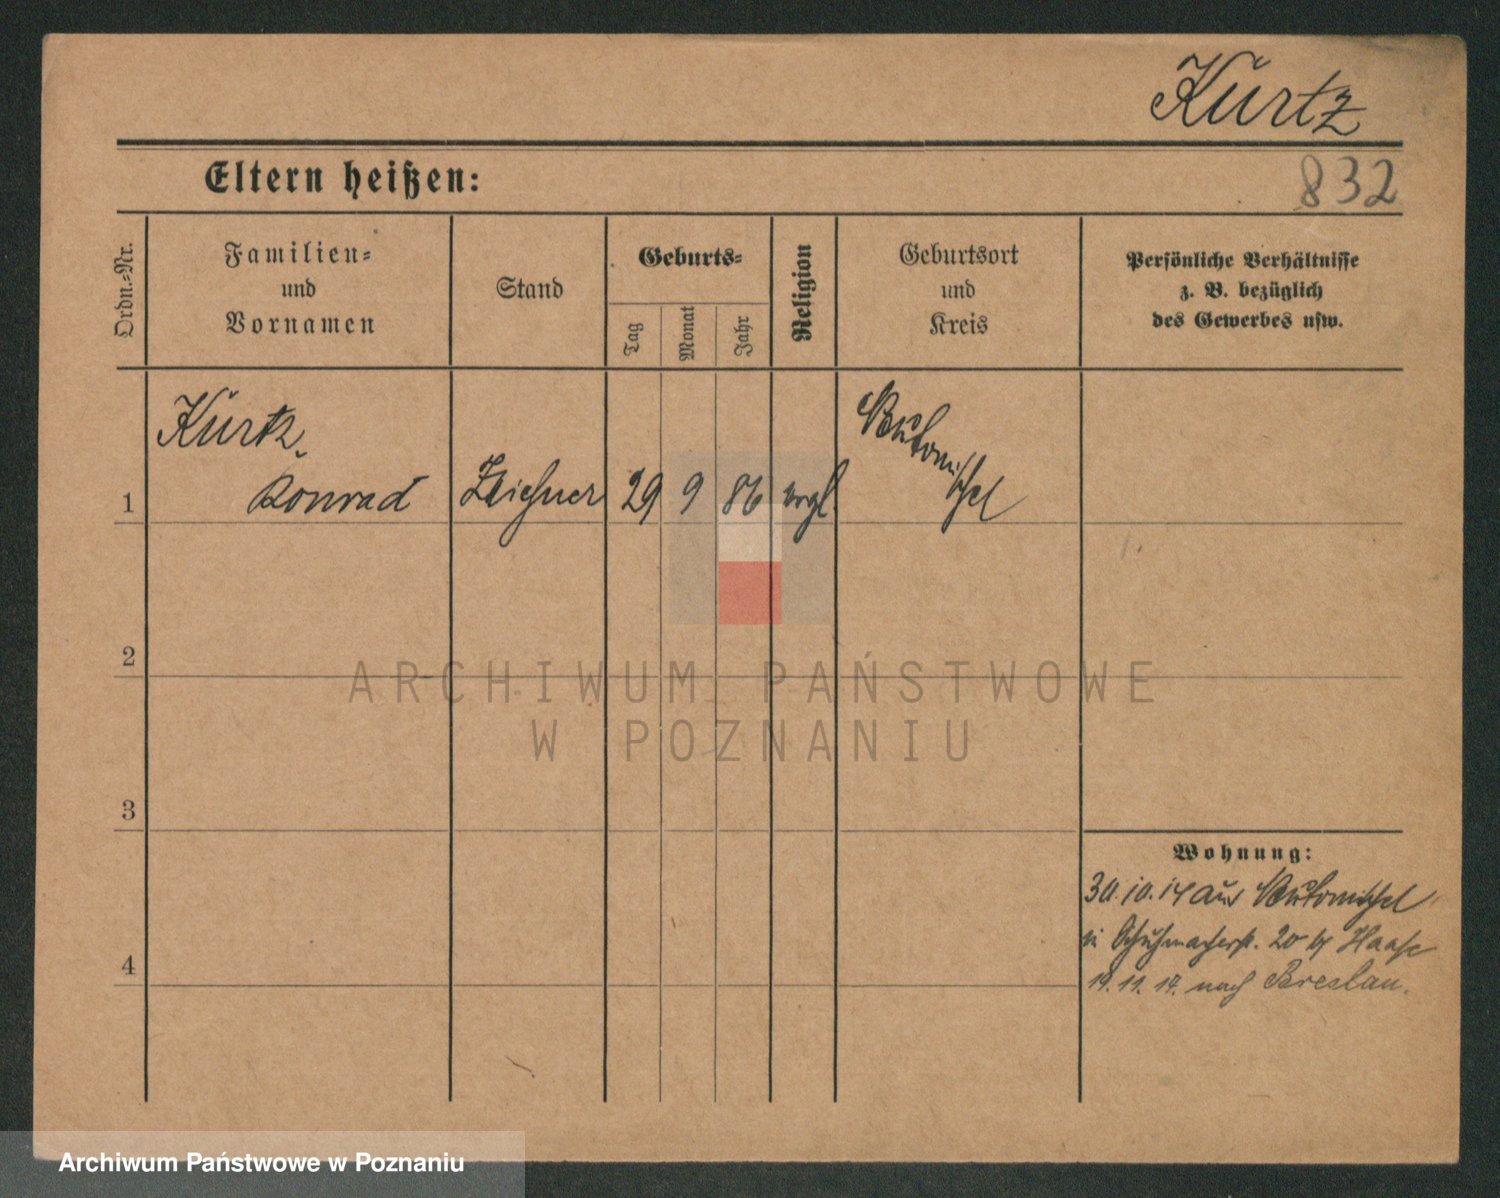 Kurtz
832
Eltern heißen:
Ordn.-Nr.
Familien-
und
Vornamen
Stand
Geburts-
Tag
Monat
Jahr
Religion
Geburtsort
und
Kreis
Persönliche Verhältnisse
z. B. bezüglich
des Gewerbes usw.
1
Kurtz,
Konrad
Zeichner
29
9
86
evgl.
Neutomischel
2
3
4
Wohnung:
30.10.14 aus Neutomischel
in Schuhmacherstr. 20 Haase
19.11. nach Breslau.
ARCHIWUM PAŃSTWOWE
W POZNANIU
Archiwum Państwowe w Poznaniu